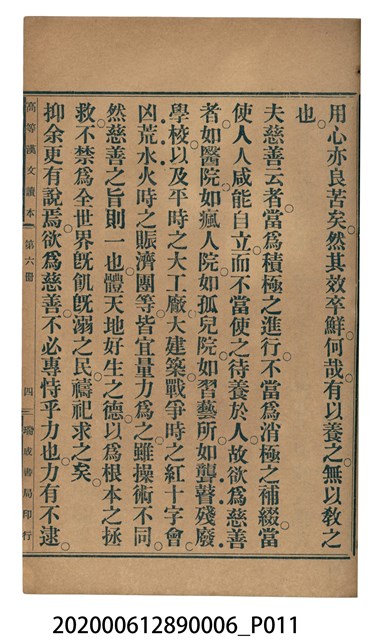 用心亦良苦矣。然其效卒鮮何哉。有以養之。無以敎之
也。
夫慈善云者。當爲積極之進行。不當爲消極之補綴。當
使人人咸能自立。而不當使之待養於人。故欲爲慈善
者。如醫院。如瘋人院。如孤兒院。如習藝所。如聾瞽殘廢
學校。以及平時之大工廠。大建築。戰爭時之紅十字會。
凶荒水火時之賑濟團等。皆宜量力爲之。雖操術不同。
然慈善之旨則一也。體天地好生之德。以爲根本之拯
救。不禁爲全世界旣飢旣溺之民。禱祀求之矣。
抑余更有說焉。欲爲慈善。不必專恃乎力也。力有不逮。
高等漢文讀本 第六冊 四 瑞成書局印行
202000612890006_P011